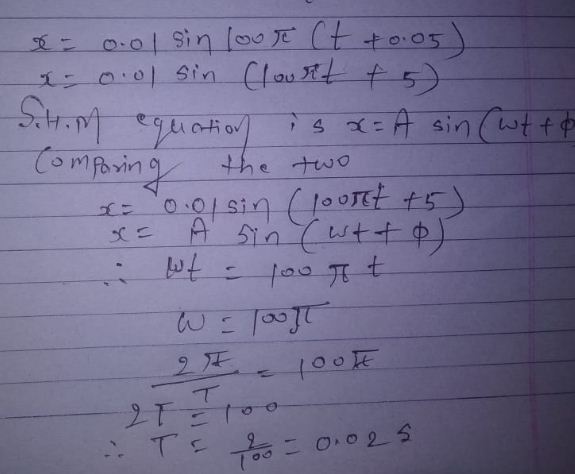 x = 0.01 sin 100π (t + 0.05)
x = 0.01 sin (100πt + 5)
S.H.M equation is x = A sin (wt + ϕ
Comparing the two
x = 0.01 sin (100πt + 5)
x = A sin (wt + ϕ)
∴ wt = 100 π t
w = 100π
2π/T = 100π
2T = 100
∴ T = 2/100 = 0.02 s